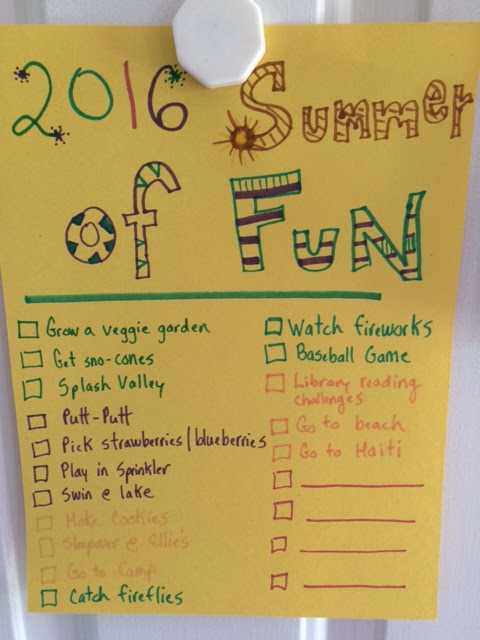 2016 Summer
of Fun
Grow a veggie garden
Get sno-cones
Splash Valley
Putt-Putt
Pick strawberries/blueberries
Play in Sprinkler
Swim @ lake
Make Cookies
Sleepover @ Ellie's
Go to Camp
Catch fireflies
Watch fireworks
Baseball Game
Library reading
challenges
Go to beach
Go to Haiti